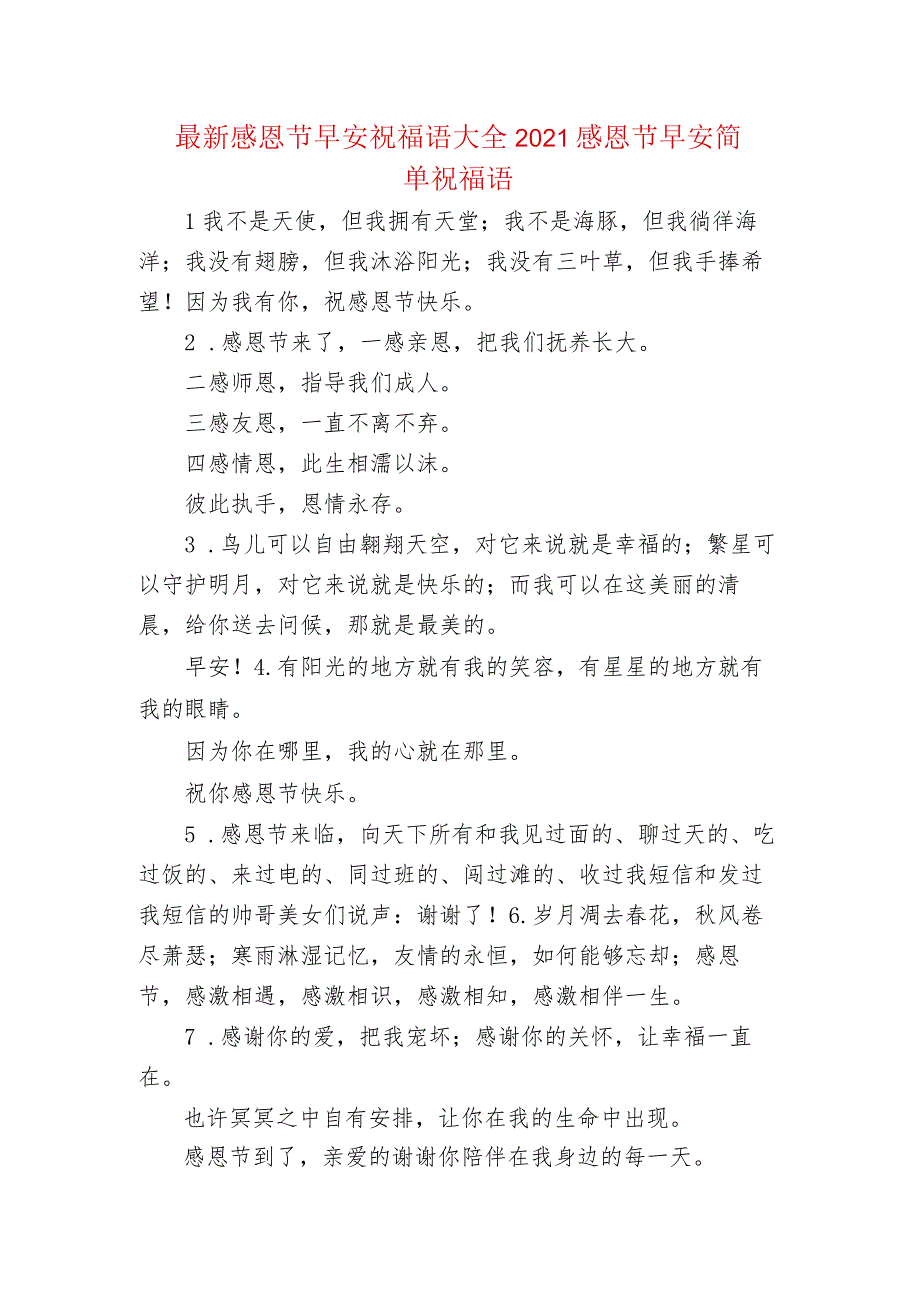 最新感恩节早安祝福语大全2021感恩节早安简
单祝福语
1我不是天使，但我拥有天堂；我不是海豚，但我徜徉海
洋；我没有翅膀，但我沐浴阳光；我没有三叶草，但我手捧希
望！因为我有你，祝感恩节快乐。
2 .感恩节来了，一感亲恩，把我们抚养长大。
二感师恩，指导我们成人。
三感友恩，一直不离不弃。
四感情恩，此生相濡以沫。
彼此执手，恩情永存。
3 .鸟儿可以自由翱翔天空，对它来说就是幸福的；繁星可
以守护明月，对它来说就是快乐的；而我可以在这美丽的清
晨，给你送去问候，那就是最美的。
早安！4.有阳光的地方就有我的笑容，有星星的地方就有
我的眼睛。
因为你在哪里，我的心就在那里。
祝你感恩节快乐。
5 .感恩节来临，向天下所有和我见过面的、聊过天的、吃
过饭的、来过电的、同过班的、闯过滩的、收过我短信和发过
我短信的帅哥美女们说声：谢谢了！6.岁月凋去春花，秋风卷
尽萧瑟；寒雨淋湿记忆，友情的永恒，如何能够忘却；感恩
节，感激相遇，感激相识，感激相知，感激相伴一生。
7 .感谢你的爱，把我宠坏；感谢你的关怀，让幸福一直
在。
也许冥冥之中自有安排，让你在我的生命中出现。
感恩节到了，亲爱的谢谢你陪伴在我身边的每一天。